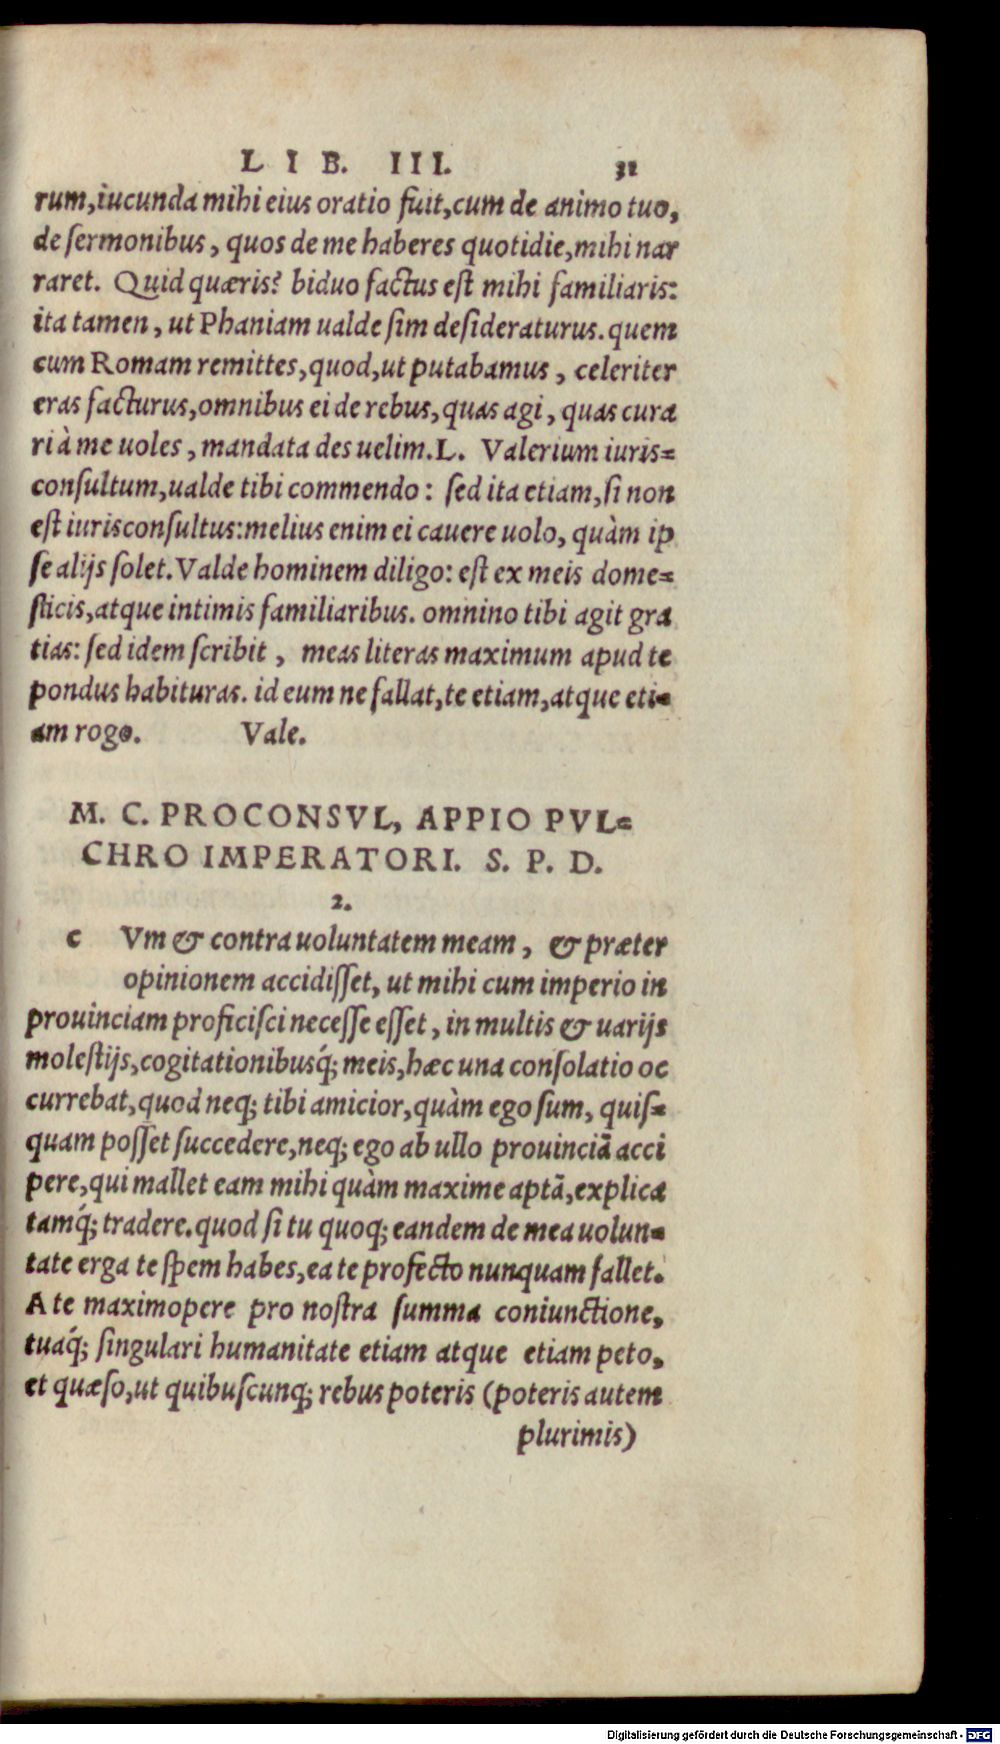 LIB. III. 31
rum,iucunda mihi eius oratio fuit,cum de animo tuo,
de sermonibus, quos de me haberes quotidie,mihi nar
raret. Quid quæris? biduo factus est mihi familiaris:
ita tamen, ut Phaniam ualde sim desideraturus. quem
cum Romam remittes,quod,ut putabamus, celeriter
eras facturus,omnibus ei de rebus,quas agi, quas cura
ri à me uoles, mandata des uelim. L. Valerium iuris=
consultum,ualde tibi commendo: sed ita etiam,si non
est iurisconsultus:melius enim ei cauere uolo, quàm ip
se alijs solet. Valde hominem diligo: est ex meis dome=
sticis,atque intimis familiaribus. omnino tibi agit gra
tias: sed idem scribit, meas literas maximum apud te
pondus habituras. id eum ne fallat,te etiam,atque eti=
am rogo. Vale.
M. C. PROCONSVL, APPIO PVL=
CHRO IMPERATORI. S. P. D.
2.
c Vm & contra uoluntatem meam, & præter
opinionem accidisset, ut mihi cum imperio in
prouinciam proficisci necesse esset, in multis & uarijs
molestijs,cogitationibusq́; meis,hæc una consolatio oc
currebat,quod neq; tibi amicior,quàm ego sum, quis=
quam posset succedere,neq; ego ab ullo prouinciã acci
pere,qui mallet eam mihi quàm maxime aptã,explica
tamq́; tradere.quod si tu quoq; eandem de mea uolun=
tate erga te spem habes,ea te profecto nunquam fallet.
A te maximopere pro nostra summa coniunctione,
tuaq́; singulari humanitate etiam atque etiam peto,
et quæso,ut quibuscunq; rebus poteris (poteris autem
plurimis)
Digitalisierung gefördert durch die Deutsche Forschungsgemeinschaft - DFG